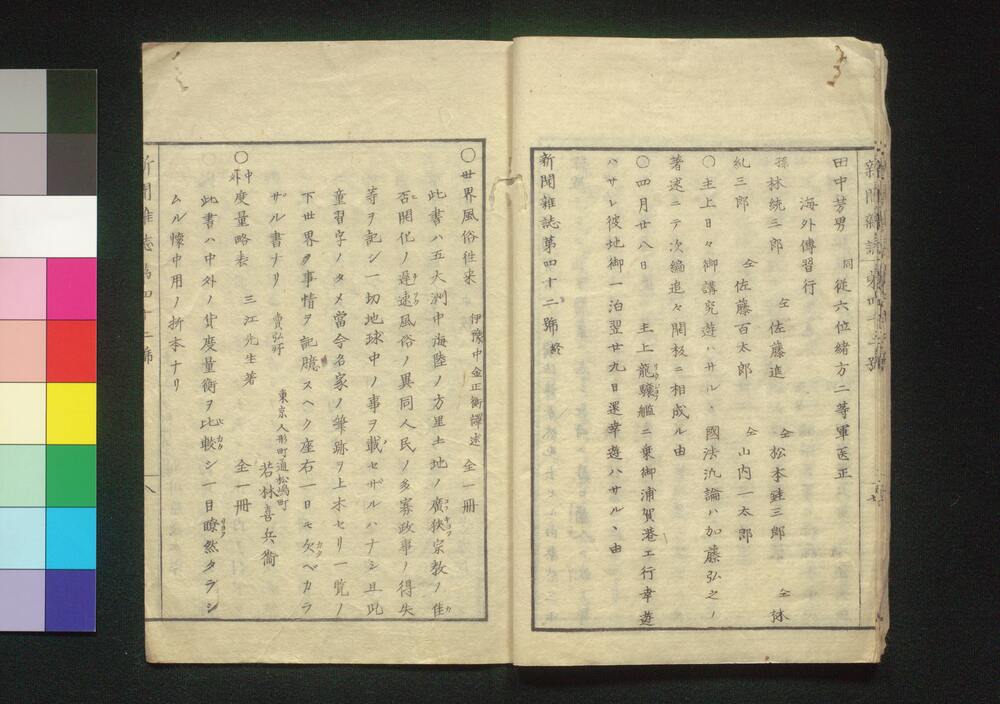 田中芳男 同 従六位緒方二等軍医正
海外傳習行
孫林統三郎 仝 佐藤進 仝 松本銈三郎 仝 林
紀三郎 仝 佐藤百太郎 仝 山内一太郎
〇主上日々御講究遊ハサル丶國法汎論ハ加藤弘之ノ
著述ニテ次編追々開板ニ相成ル由
〇四月廿八日 主上龍驤艦ニ乗御浦賀港エ行幸遊
ハサレ彼地御一泊翌廿九日還幸遊ハサル丶由
新聞雑誌第四十二號 終
〇世界風俗往来 伊豫中金正衡譯述 全一冊
此書ハ五大洲中海陸ノ方里土地ノ廣狹宗教ノ佳
否開化ノ遅速風俗ノ異同人民ノ多寡政事ノ得失
等ヲ記シ一切地球中ノ事ヲ載セザルハナシ且此
童習字ノタメ當今名家ノ筆跡ヲ上木セリ一覧ノ
下世界ノ事情ヲ記臆スヘク座右一日モ欠ベカラ
ザル書ナリ 賣弘所 東京人形町通松嶋町 若林喜兵衛
〇中外度量略表 三江先生著 全一冊
此書ハ中外ノ貨度量衡ヲ比較シ一目瞭然タラシ
ムル懐中用ノ折本ナリ
新聞雑誌第四十二號 八